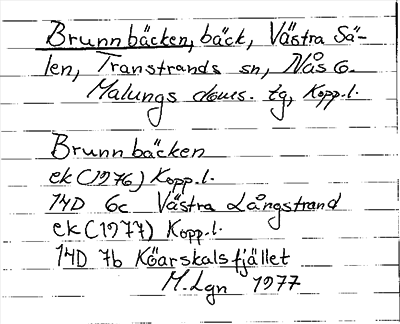 Brunnbäcken, bäck, Västra Sä-
len, Transtrands sn, Nås o.
Malungs doms. tg, Kopp.l.
Brunnbäcken
ek (1976) Kopp.l.
14D 6c Västra Långstrand
ek (1977) Kopp.l.
14D 7b Köarskalsfjället
M.Lgn 1977